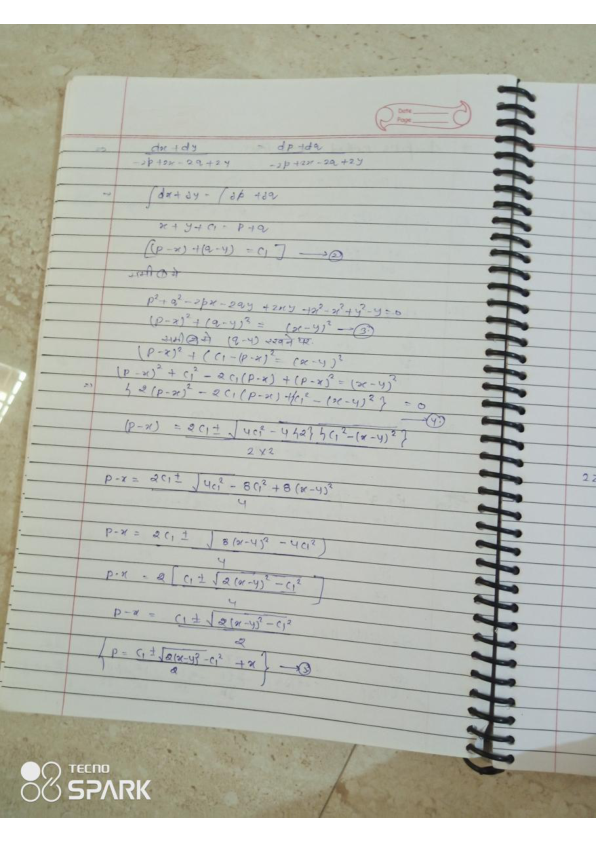 Date
Page
=> dx + dy / -2p+2x-2q+2y = dp + dq / -2p+2x-2q+2y
∫dx + dy = ∫dp + dq
x + y + c₁ = p + q
[(p-x) + (q-y) = c₁] → ②
p² + q² - 2px - 2qy + 2xy + x² - x² + y² - y² = 0
(p-x)² + (q-y)² = (x-y)² → ③
(q-y)
(p-x)² + (c₁-(p-x)² = (x-y)²
(p-x)² + c₁² - 2c₁(p-x) + (p-x)² = (x-y)²
=> {2(p-x)² - 2c₁(p-x) + {c₁² - (x-y)²} = 0 → ④
(p-x) = 2c₁ ± √4c₁² - 4{2}{c₁² - (x-y)²} / 2×2
p-x = 2c₁ ± √4c₁² - 8c₁² + 8(x-y)² / 4
p-x = 2c₁ ± √8(x-y)² - 4c₁² / 4
p-x = 2[c₁ ± √2(x-y)² - c₁²] / 4
p-x = c₁ ± √2(x-y)² - c₁² / 2
{p = c₁ ± √2(x-y)² - c₁² / 2 + x} →
22
TECNO
SPARK